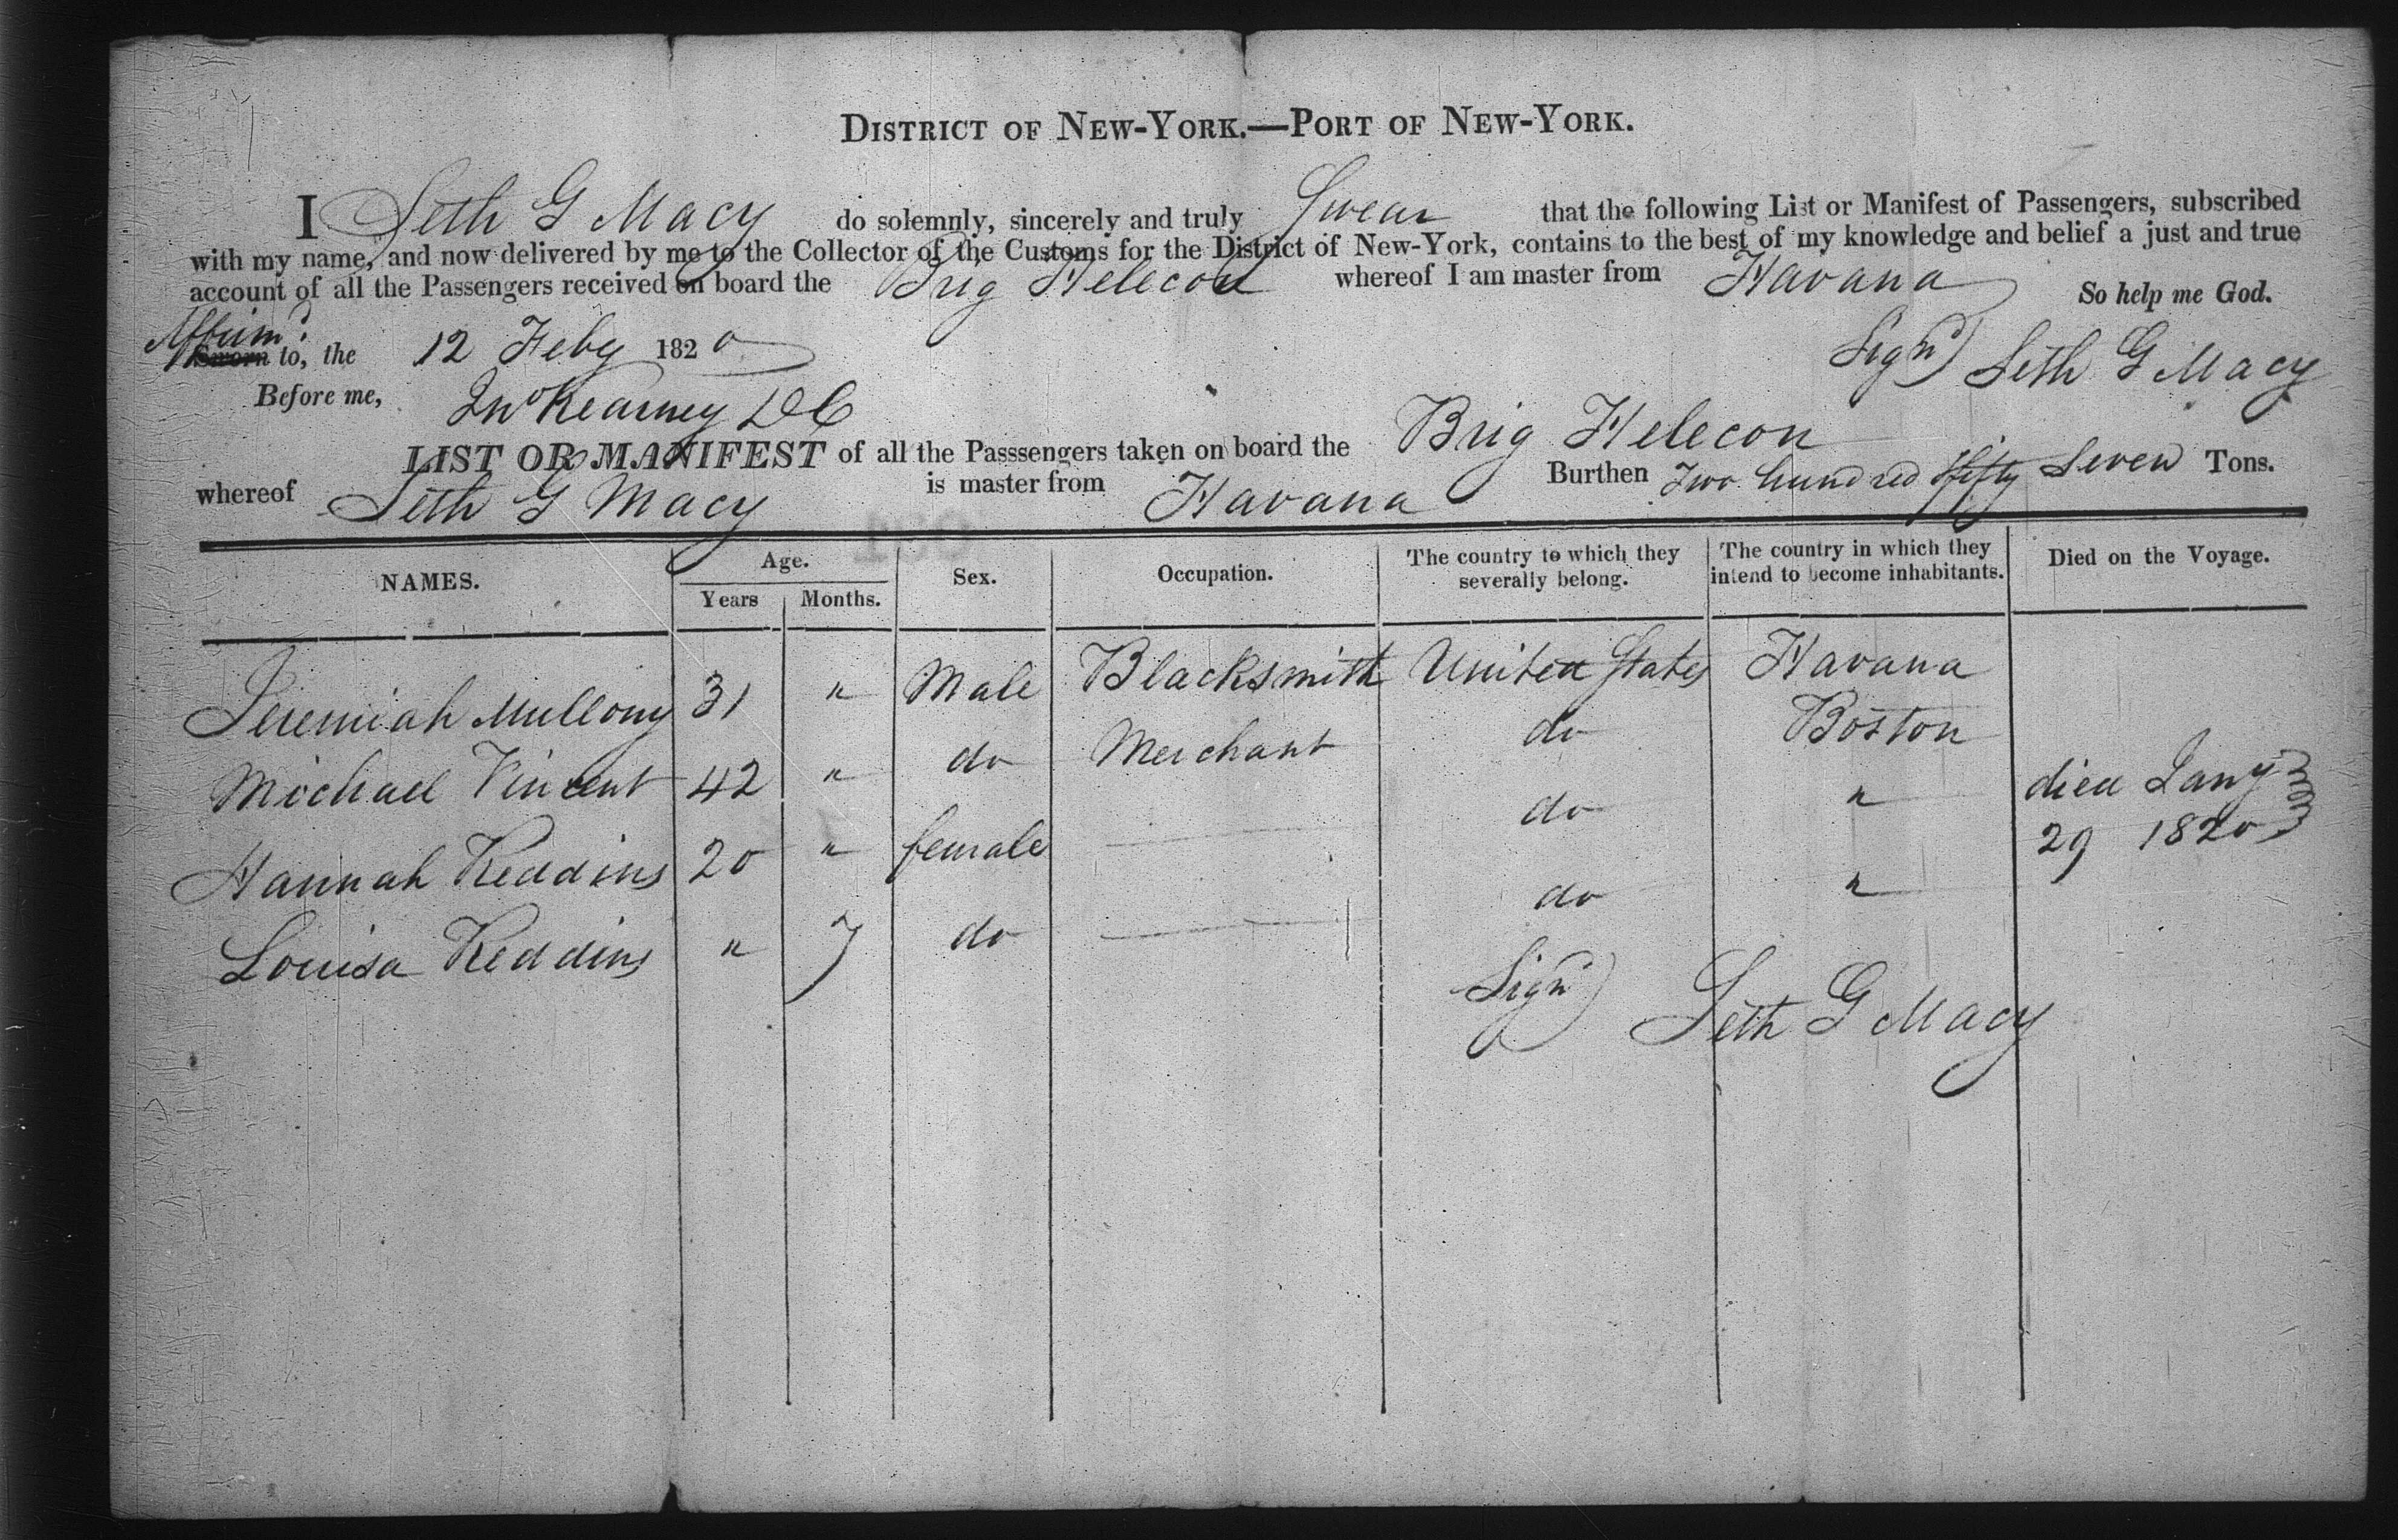 DISTRICT OF NEW-YORK.—PORT OF NEW-YORK.
I Seth G Macy do solemnly, sincerely and truly Swear that the following List or Manifest of Passengers, subscribed
with my name, and now delivered by me to the Collector of the Customs for the District of New-York, contains to the best of my knowledge and belief a just and true
account of all the Passengers received on board the Brig Helecon whereof I am master from Havana So help me God.
Affirmd.
Sworn to, the 12 Feby 1820 Signd) Seth G Macy
Before me, Jno Kearney DC
LIST OR MANIFEST of all the Passsengers taken on board the Brig Helecon
whereof Seth G Macy is master from Havana Burthen Two hundred fifty Seven Tons.
NAMES. Age. Years Months. Sex. Occupation. The country to which they severally belong. The country in which they intend to become inhabitants. Died on the Voyage.
Jeremiah Mullony 31 " Male Blacksmith United States Havana
Michael Vincent 42 " do Merchant do Boston
Hannah Keddins 20 " female do " died Jany 29 1820
Louisa Keddins " 7 do do "
Signd) Seth G Macy